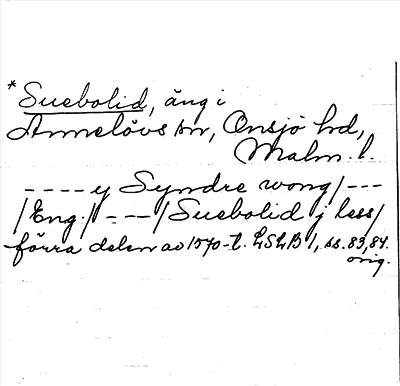 * Suebolid, äng i
Annelövs sn, Onsjö hd,
Malm. l.
---- y Syndre wong/---
/Eng./- - --/Suebolid j less/
förra delen av 1570-t. LSLB 1, ss. 83, 84.
orig.